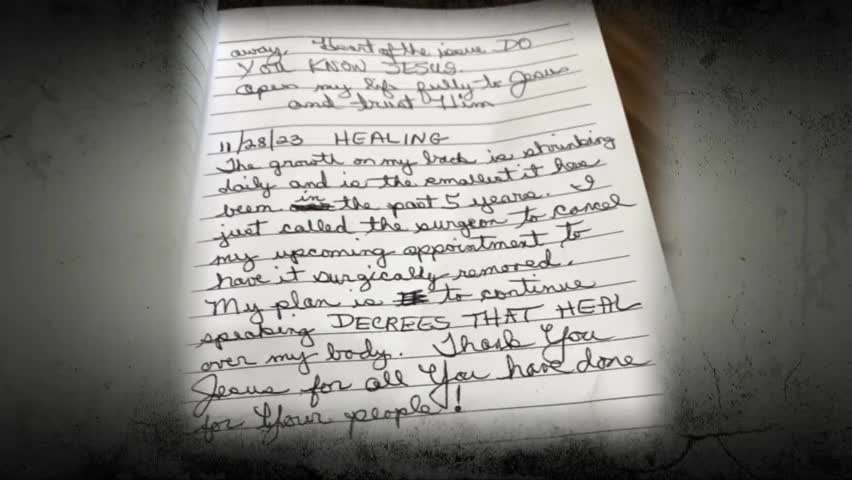 away. Heart of the issue DO
YOU KNOW JESUS.
open my life fully to Jesus
and trust Him
11/28/23 HEALING
The growth on my back is shrinking
daily and is the smallest it has
been in the past 5 years. I
just called the surgeon to cancel
my upcoming appointment to
have it surgically removed.
My plan is to continue
speaking DECREES THAT HEAL
over my body. Thank You
Jesus for all You have done
for Your people!